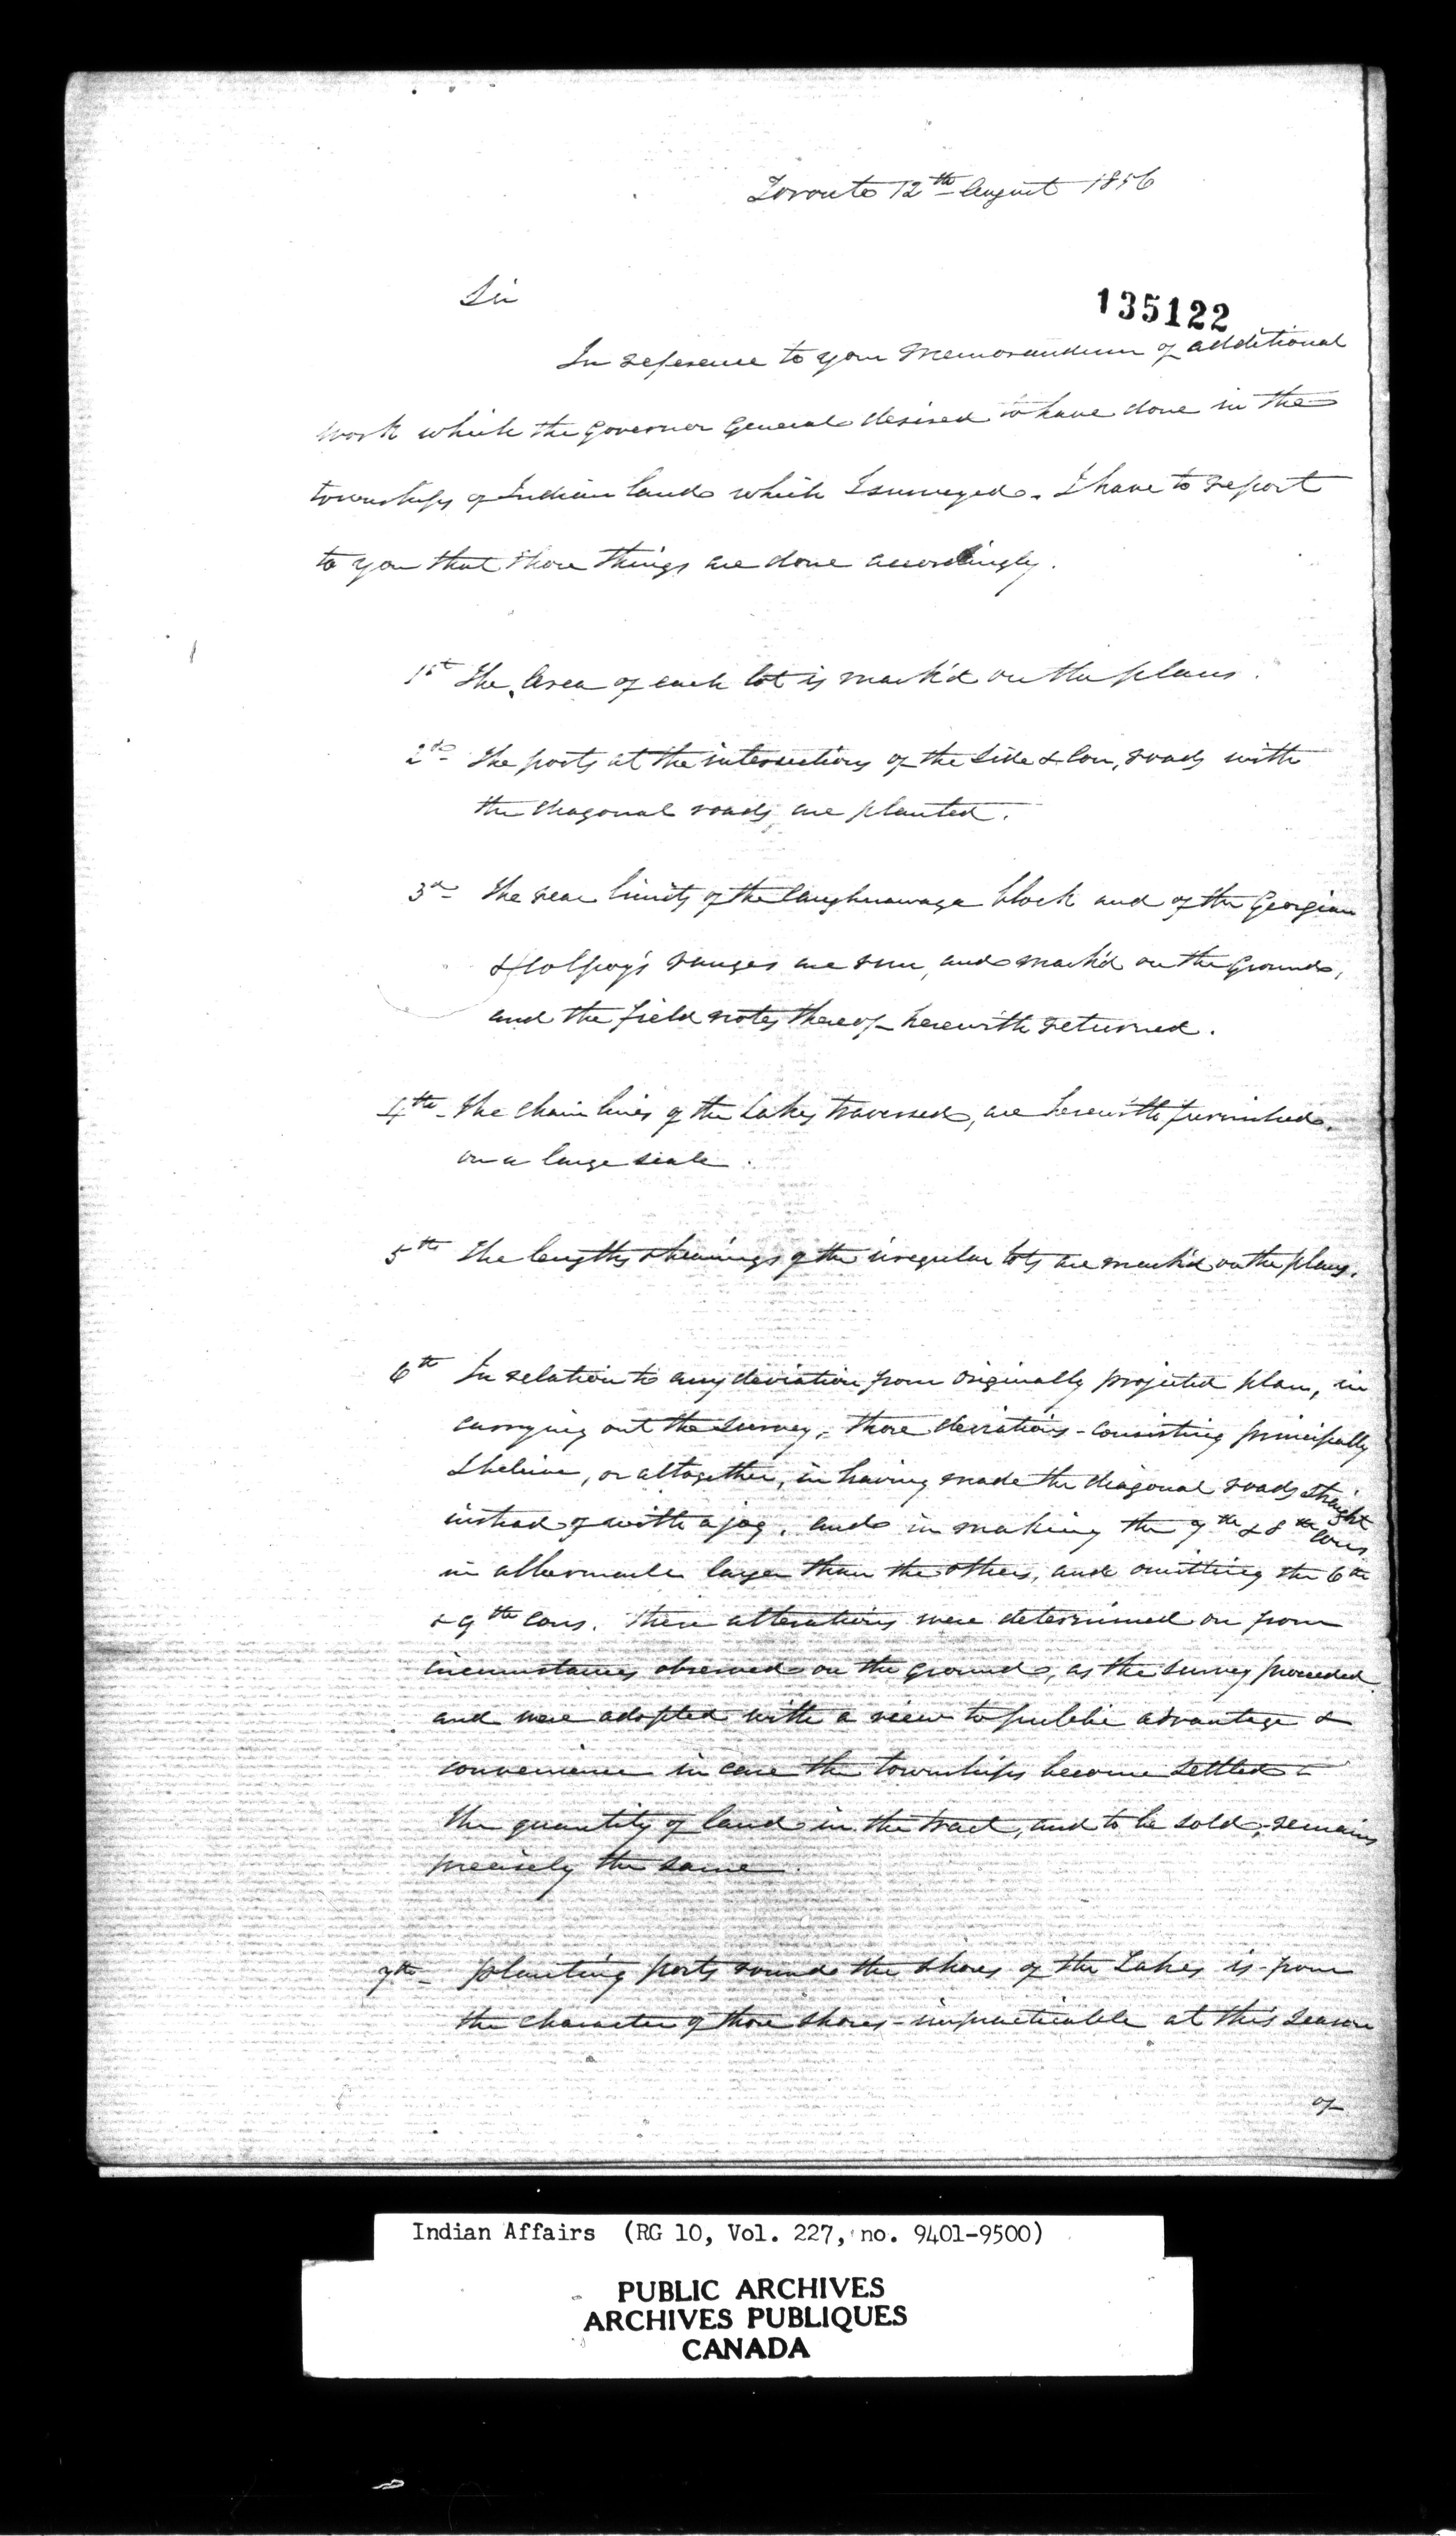 Toronto 12th August 1856
Sir
135122
In reference to your memorandum of additional
work which the Governor General desired to have done in the
townships of Indian land which I surveyed. I have to report
to you that those things are done accordingly.
1st The Area of each lot is mark'd on the plans.
2d The posts at the intersections of the side & Con, roads with
the diagonal roads, are planted.
3d The rear limits of the Caughnawaga block and of the Georgian
& Colpoy's ranges are run, and mark'd on the Ground,
and the field notes thereof herewith returned.
4th The chain lines of the Lakes traversed, are herewith furnished.
on a large scale.
5th The lengths & bearings of the irregular lots are mark'd on the plans.
6th In relation to any deviation from originally projected plan, in
carrying out the survey, those deviations - consisting principally
I believe, or altogether, in having made the diagonal roads straight
instead of with a jog, and in making the 7th & 8th Cons
in Albermarle larger than the others, and omitting the 6th
& 9th Cons. These alterations were determined on from
circumstances observed on the ground, as the survey proceeded
and were adopted with a view to public advantage &
convenience in case the townships become settled -
The quantity of land in the tract, and to be sold, remains
precisely the same.
7th planting posts round the shores of the Lakes is - from
the character of those shores - impracticable at this season
of
Indian Affairs (RG 10, Vol. 227, no. 9401-9500)
PUBLIC ARCHIVES
ARCHIVES PUBLIQUES
CANADA